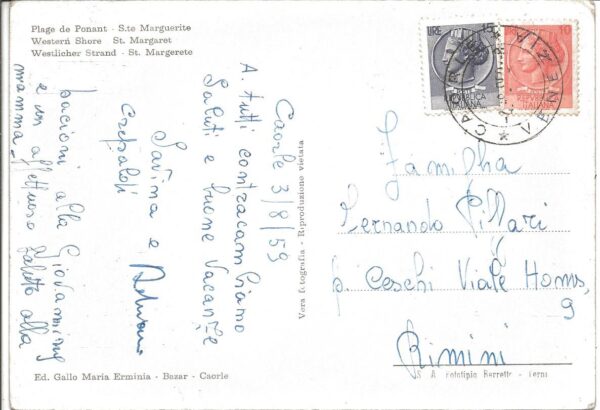 Plage de Ponant - S.te Marguerite
Western Shore St. Margaret
Westlicher Strand - St. Margerete
Caorle 3/8/59
A tutti contracambiamo
Saluti e buone Vacanze
Savina e
bacioni alla Giovannina
e un affettuoso saluto alla
mamma
Vera fotografia - Riproduzione vietata
Ed. Gallo Maria Erminia - Bazar - Caorle
LIRE
10
CAORLE
Familha
Fernando Pillari
p. Ceschi Viale
9
Rimini
S. A. Fototipia Berretta - Terni